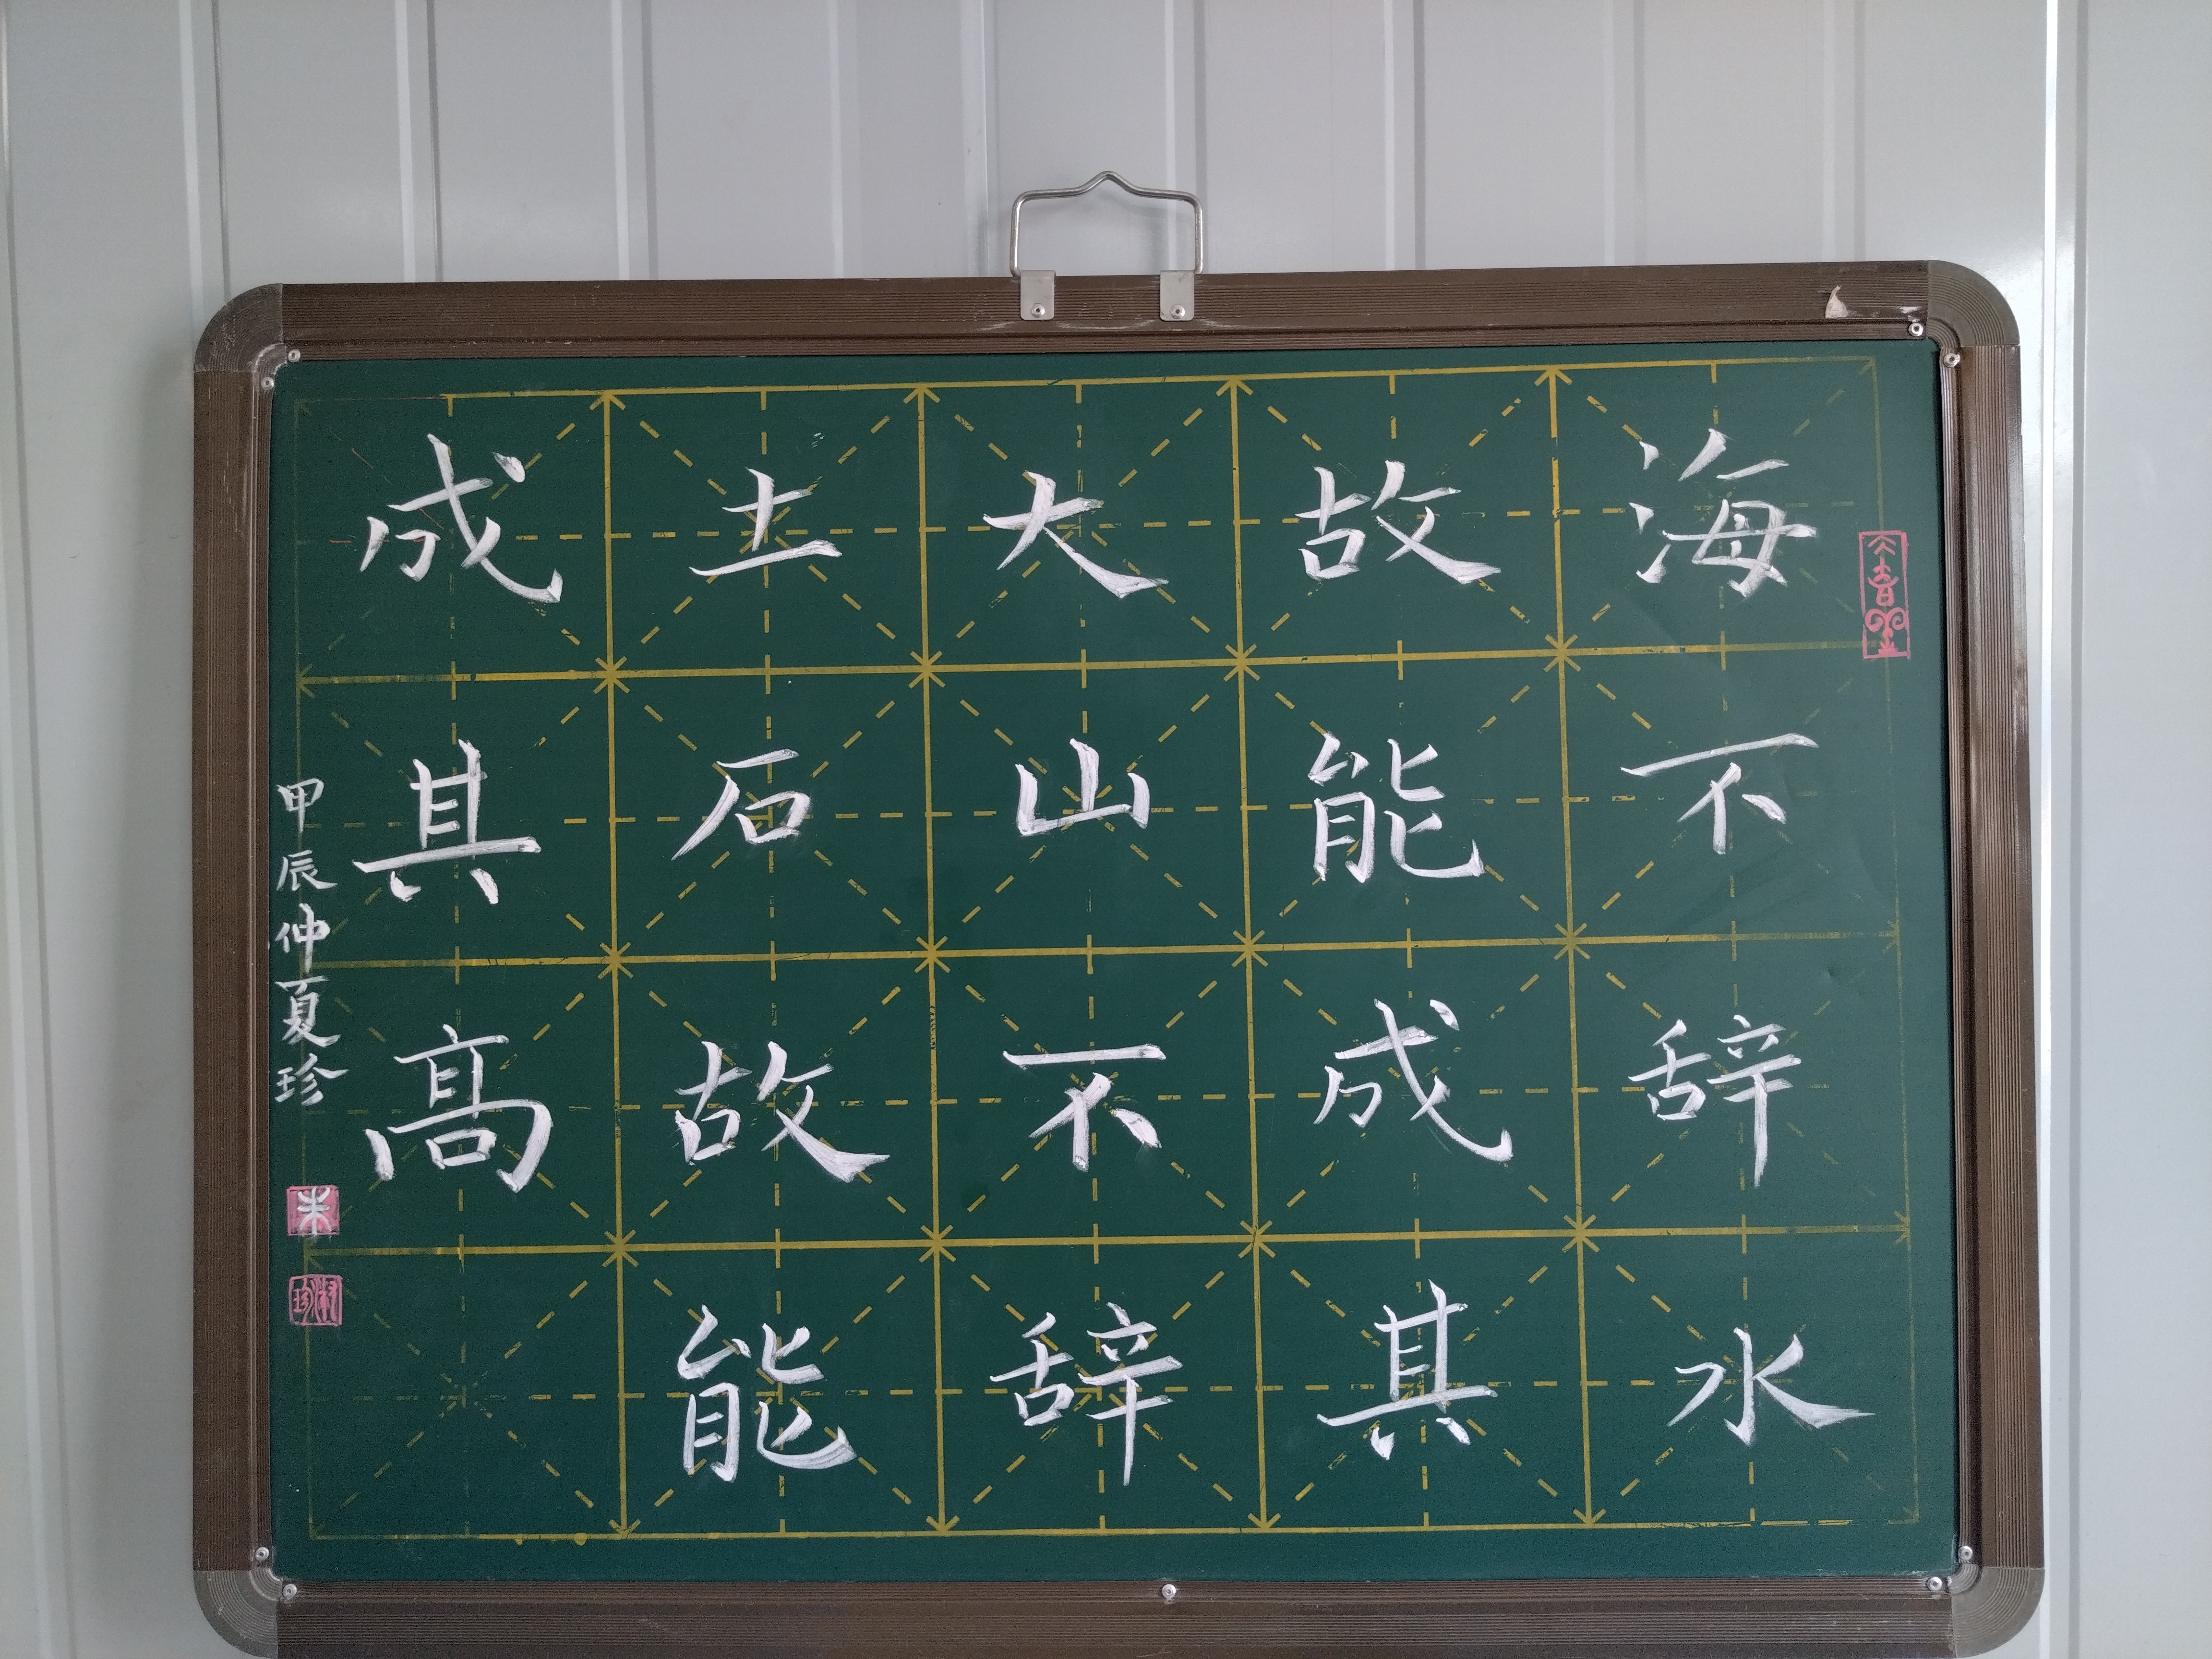 海不辞水
故能成其
大山不辞
土石故能
成其高
甲辰仲夏珍
朱